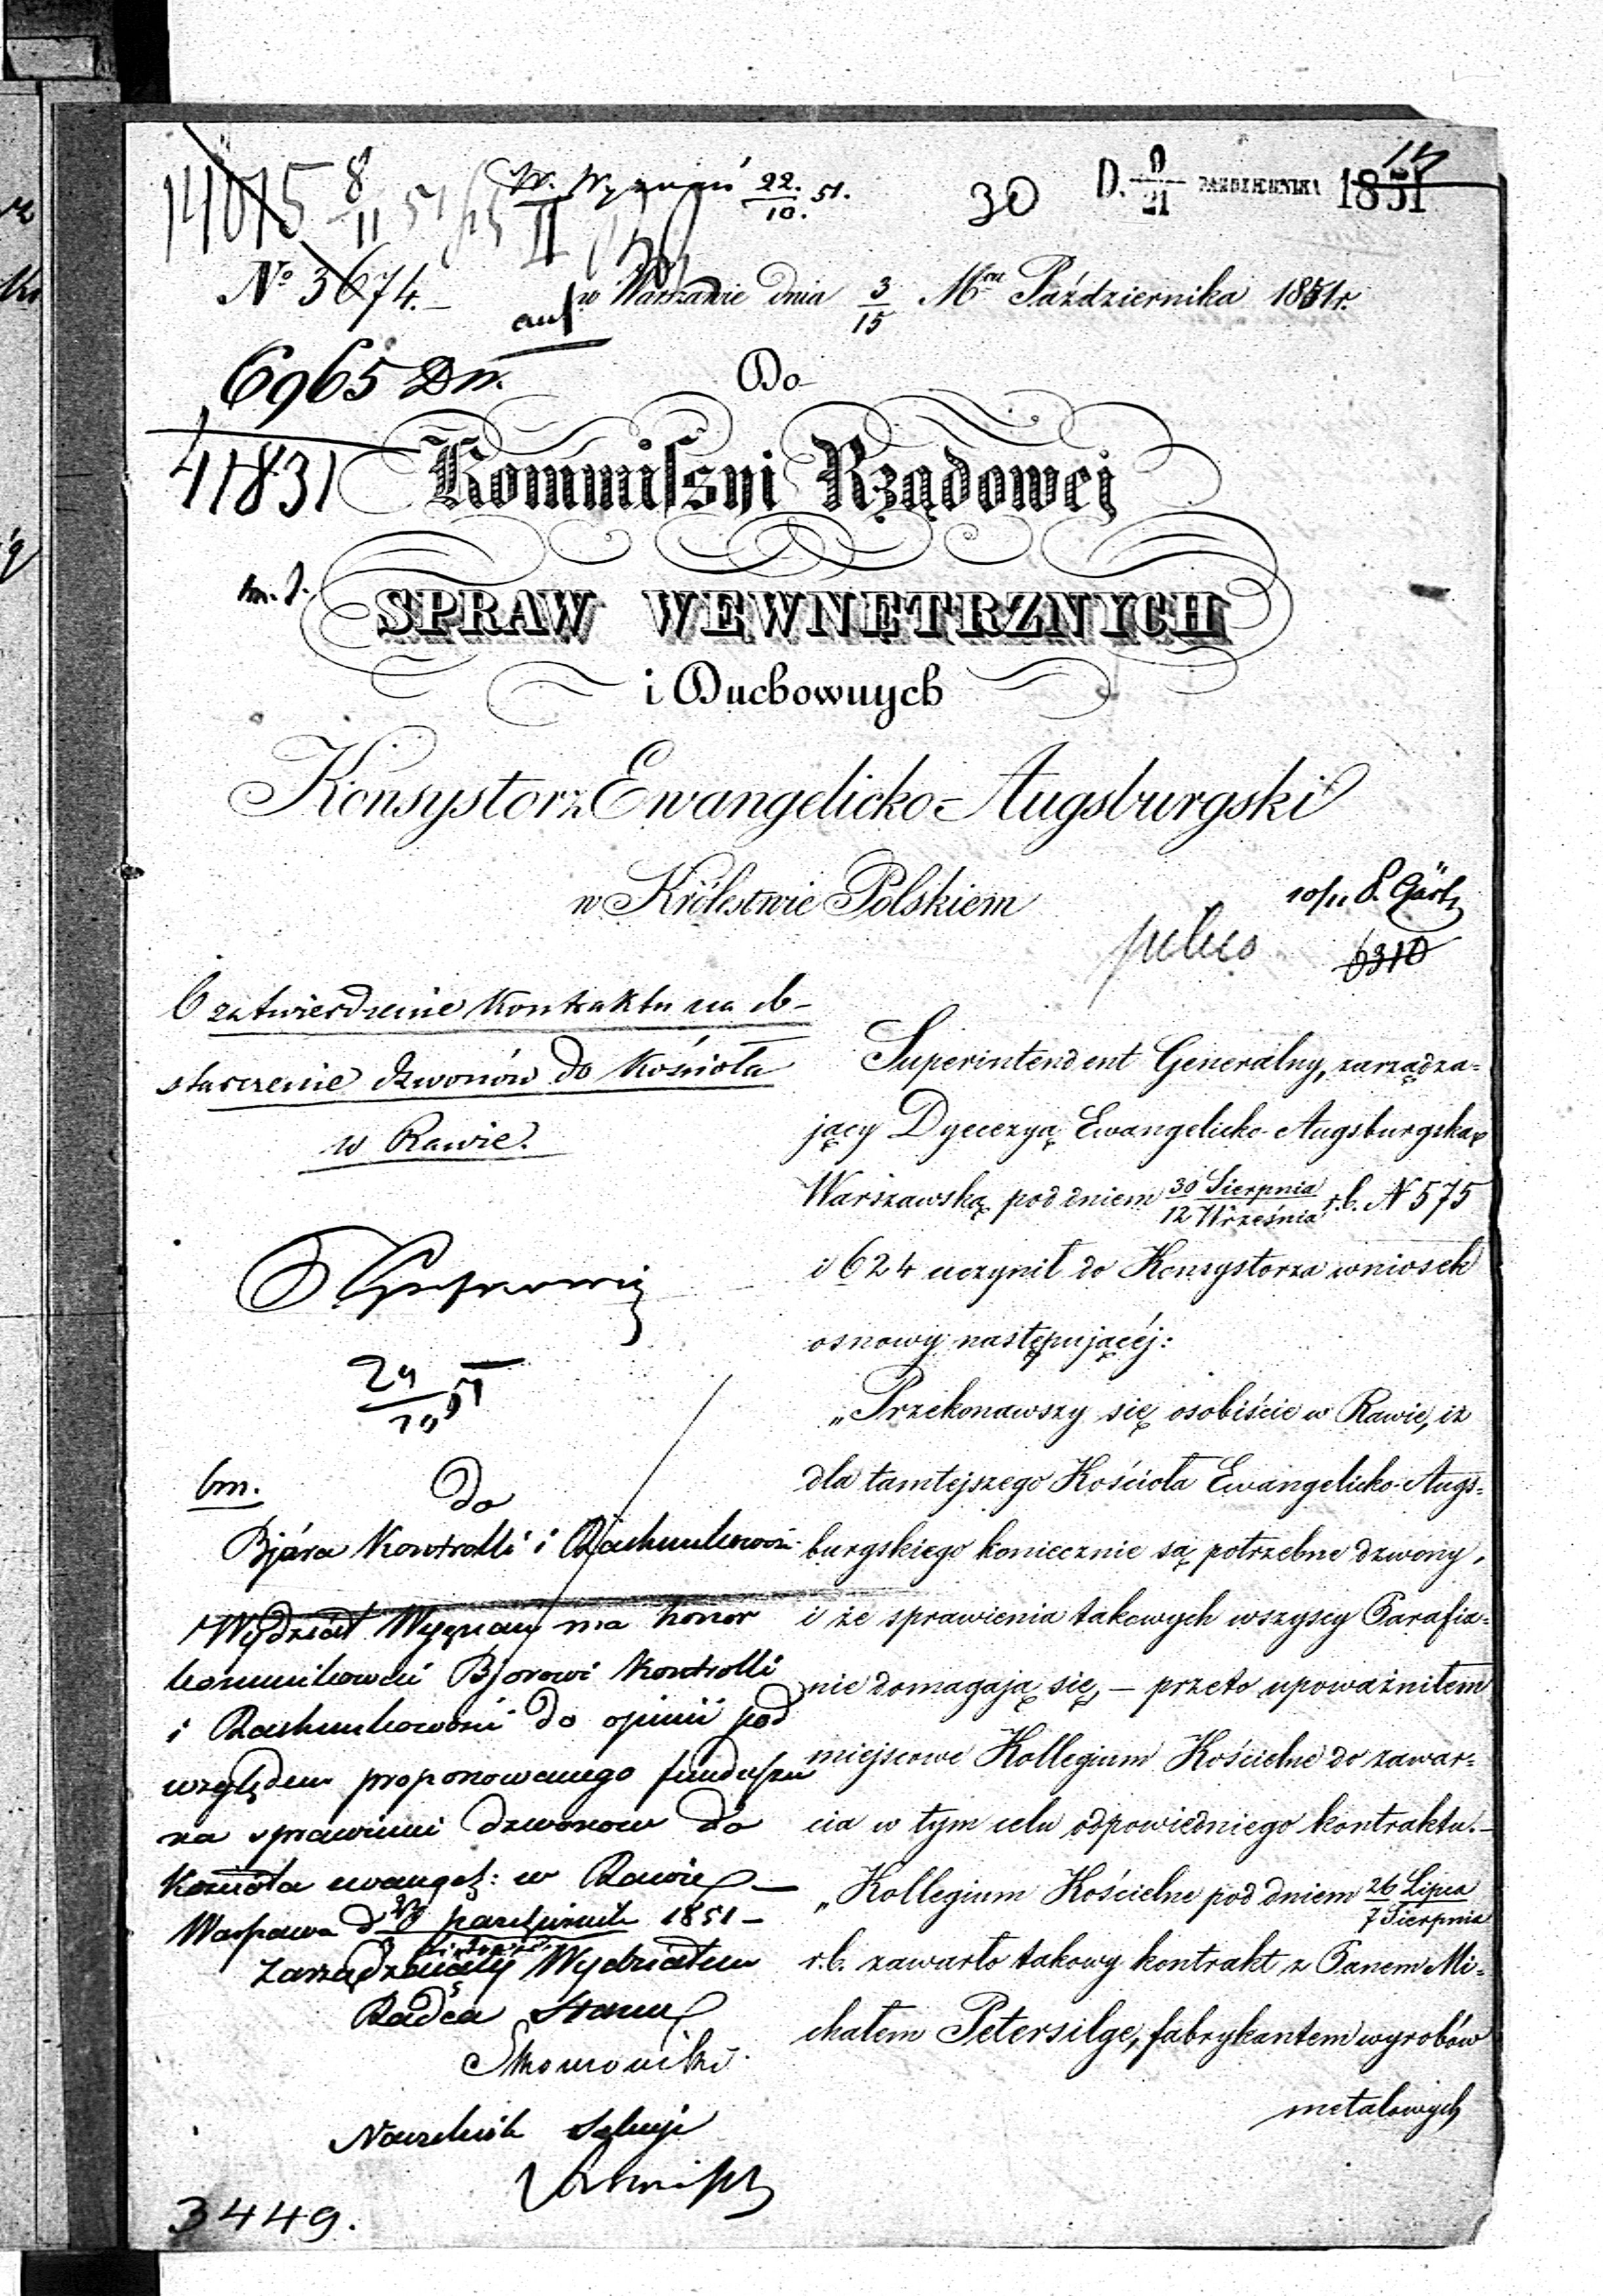 14075 8/11 51
W. Wyznań 22./10. 51.
30
D. 9/21 PAŹDZIERNIKA 1851
No 3674.
w Warszawie dnia 3/15 Mca Października 1851 r.
6965 Dn.
41831
Do
Kommissyi Rządowej
SPRAW WEWNĘTRZNYCH
i Duchownych
Konsystorz Ewangelicko-Augsburgski
w Królestwie Polskiem
6310
O zatwierdzenie Kontraktu na do-
starczenie dzwonów do Kościoła
w Rawie.
24/10 51
bm.
Do
Bjóra Kontrolli i Rachunkowości
Wydział Wyznań ma honor
kommunikować Bjorowi Kontrolli
i Rachunkowości do opinii pod
względem proponowanego funduszu
na sprawienie dzwonów do
Kościoła ewangel: w Rawie
Warszawa d. Października 1851
Zarządzający Wydziałem
Radca Stanu
Naczelnik Sekcyi
3449.
Superintendent Generalny, zarządza-
jący Dyecezyą Ewangelicko-Augsburgską
Warszawską, pod dniem 30 Sierpnia/12 Września r.b. N 575
i 624 uczynił do Konsystorza wniosek
osnowy następującéj:
„Przekonawszy się osobiście w Rawie, iż
dla tamtejszego Kościoła Ewangelicko-Augs-
burgskiego koniecznie są potrzebne dzwony,
i że sprawienia takowych wszyscy Parafia-
nie domagają się, — przeto upoważniłem
miejscowe Kollegium Kościelne do zawar-
cia w tym celu odpowiedniego kontraktu.—
„Kollegium Kościelne pod dniem 26 Lipca/7 Sierpnia
r.b. zawarło takowy kontrakt z Panem Mi-
chałem Petersilge, fabrykantem wyrobów
metalowych